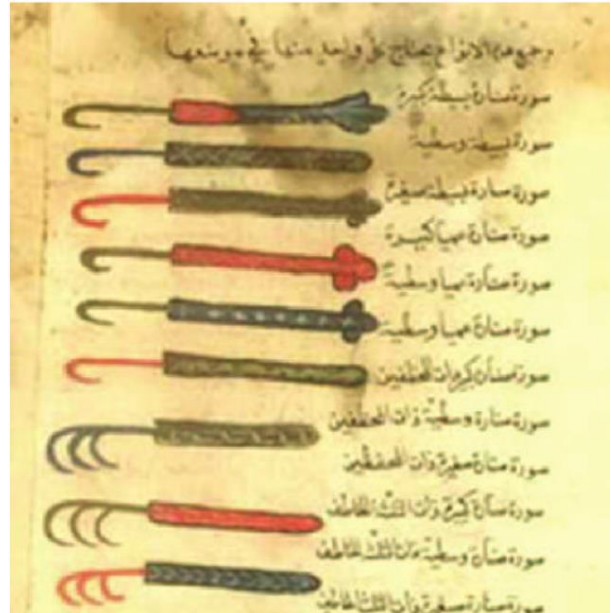 وجميع هذه الانواع يحتاج كل واحد منها في موضعها
صورة صنارة بسيطة كبيرة
صورة بسيطة وسطية
صورة صنارة بسيطة صغيرة
صورة صنارة عميا كبيرة
صورة صنارة عميا وسطية
صورة صنارة عميا وسطية
صورة صنارة كبيرة ذات المخطفين
صورة صنارة وسطية ذات المخطفين
صورة صنارة صغيرة ذات المخطفين
صورة صنارة كبيرة ذات الثلث المخاطف
صورة صنارة وسطية ذات الثلث المخاطف
صورة صنارة صغيرة ذات الثلث المخاطف